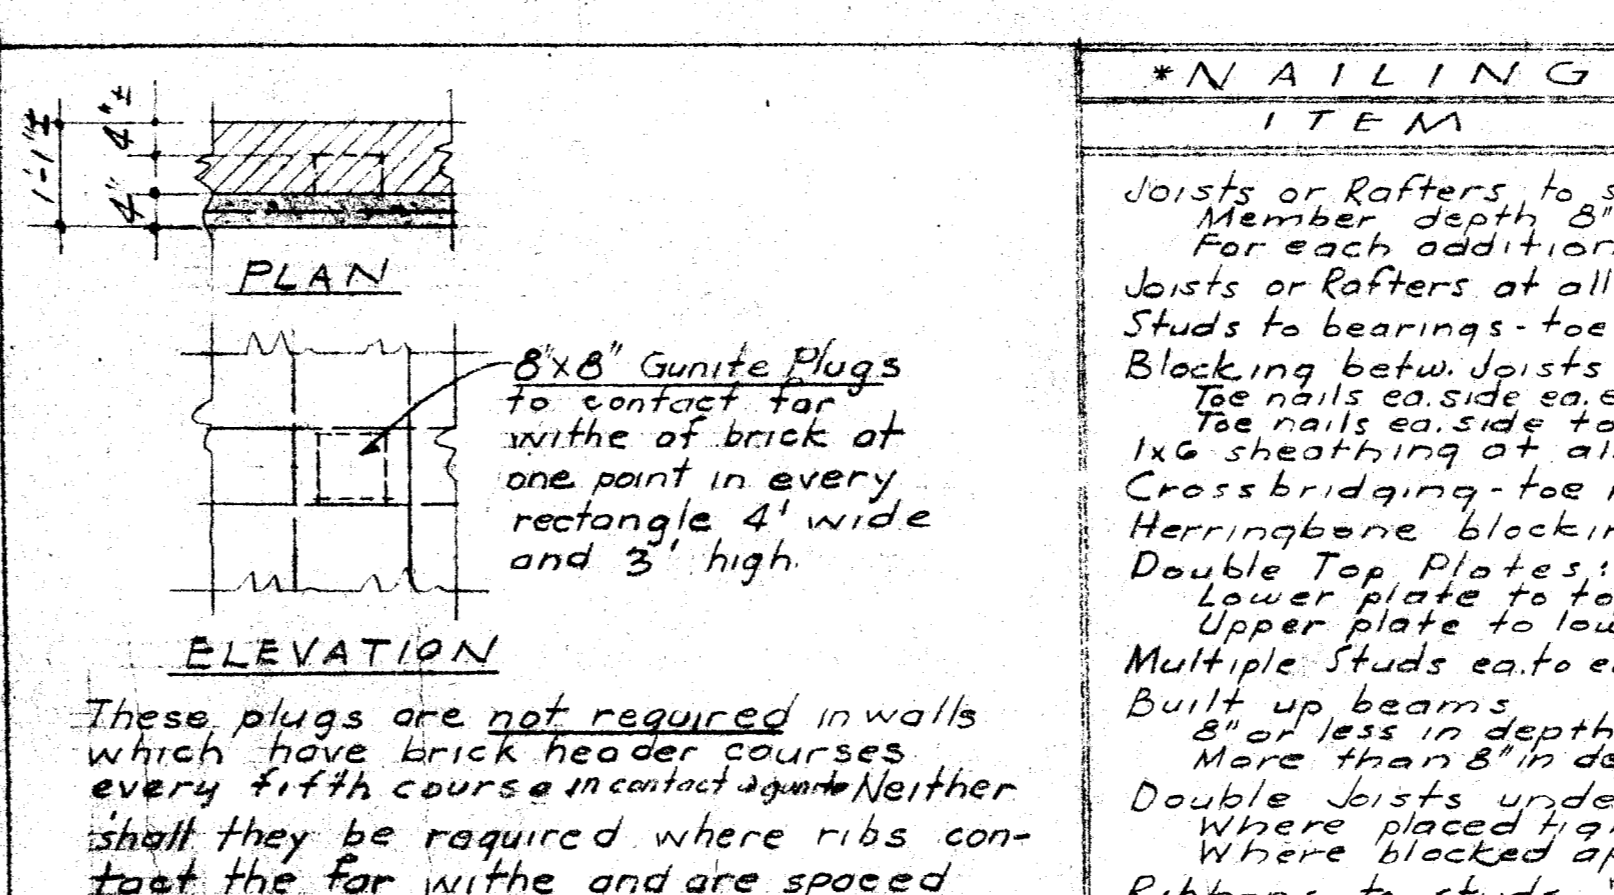 1'-1"±
4"±
4"
PLAN
8"x8" Gunite Plugs
to contact far
withe of brick at
one point in every
rectangle 4' wide
and 3' high.
ELEVATION
These plugs are not required in walls
which have brick header courses
every fifth course in contact w gunite Neither
shall they be required where ribs con-
tact the far withe and are spaced
*NAILING
ITEM
Joists or Rafters to s
Member depth 8"
For each addition
Joists or Rafters at all
Studs to bearings - toe
Blocking betw. Joists
Toe nails ea. side ea. e
Toe nails ea. side to
1x6 sheathing at al
Crossbridging - toe
Herringbone blockin
Double Top Plates:
Lower plate to to
Upper plate to low
Multiple Studs ea. to e
Built up beams
8" or less in depth
More than 8" in de
Double Joists unde
Where placed tig
Where blocked ap
Ribbons to studs